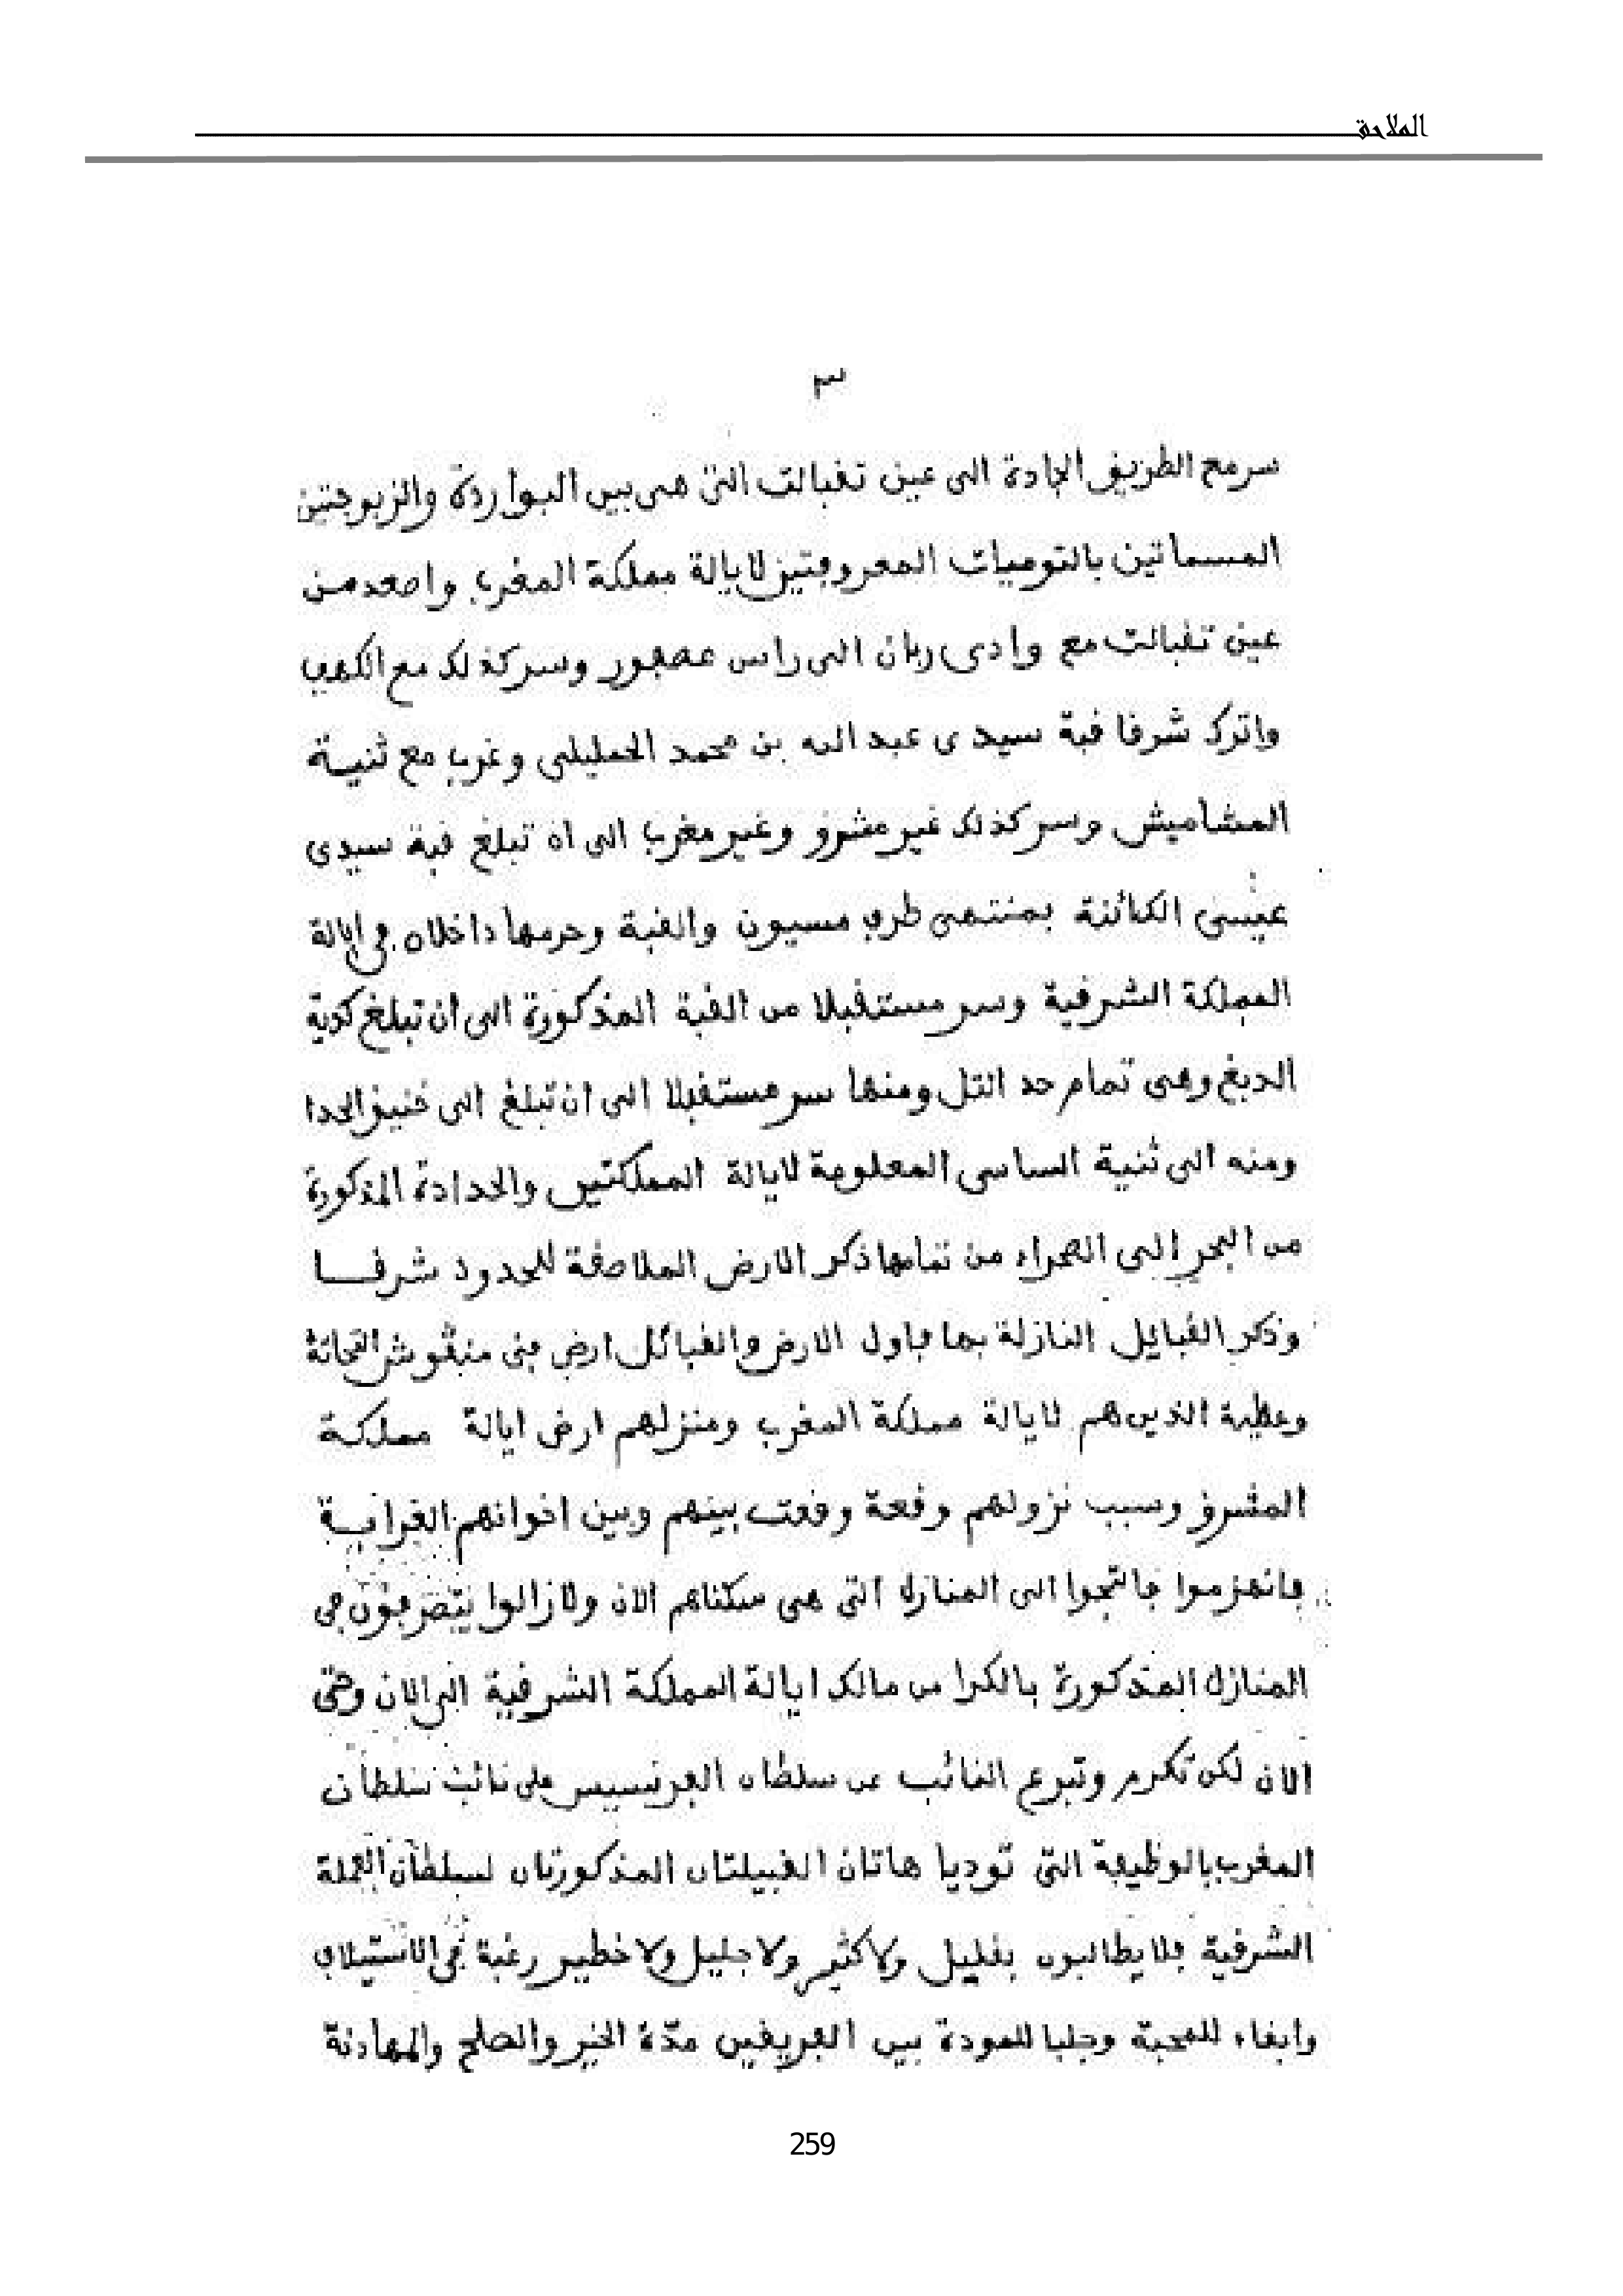 الملاحق
٣
سر مع الطريق الجادة الى عين تقبالت التى هى بين البواردة والزبوجتين
المسماتين بالتوميات المعروفتين لايالة مملكة المغرب واصعد من
عين تقبالت مع وادى ربان الى راس عصفور وسر كذلك مع الكهف
واترك شرقا قبة سيدى عبد الله بن محمد الحمليلى وغرب مع ثنية
المشاميش وسر كذلك غير مشرق وغير مغرب الى ان تبلغ قبة سيدى
عيسى الكائنة بمنتهى طرف مسيون والقبة وحرمها داخلان فى ايالة
المملكة الشرقية وسر مستقبلا من القبة المذكورة الى ان تبلغ كدية
الدبغ وهى تمام حد التل ومنها سر مستقبلا الى ان تبلغ الى خنيق الحدا
ومنه الى ثنية الساسى المعلومة لايالة المملكتين والحدادة المذكورة
من البحر إلى الصحراء من تمامها ذكر الارض الملاصقة للحدود شرقا
وذكر القبايل النازلة بها فاول الارض والقبائل ارض بنى منقوش التحاتة
وعطية الذين هم لايالة مملكة المغرب ومنزلهم ارض ايالة مملكة
المشرق وسبب نزولهم وقعة وقعت بينهم وبين اخوانهم الغرابـة
فانهزموا فالتجوا الى المنازل التى هى سكناهم الان ولازالوا يتصرفون فى
المنازل المذكورة بالكرا من مالك ايالة المملكة الشرقية الى الان وحتى
الان لكن تكرم وتبرع النائب عن سلطان الفرنسيس على نائب سلطان
المغرب بالوظيفة التى توديا هاتان القبيلتان المذكورتان لسلطان العملة
الشرقية فلا يطالبون بقليل ولا كثير ولا جليل ولا خطير رغبة فى الاستيلاف
وابقاء للمحبة وجلبا للمودة بين الفريقين مدّة الخير والصلح والمهادنة
259